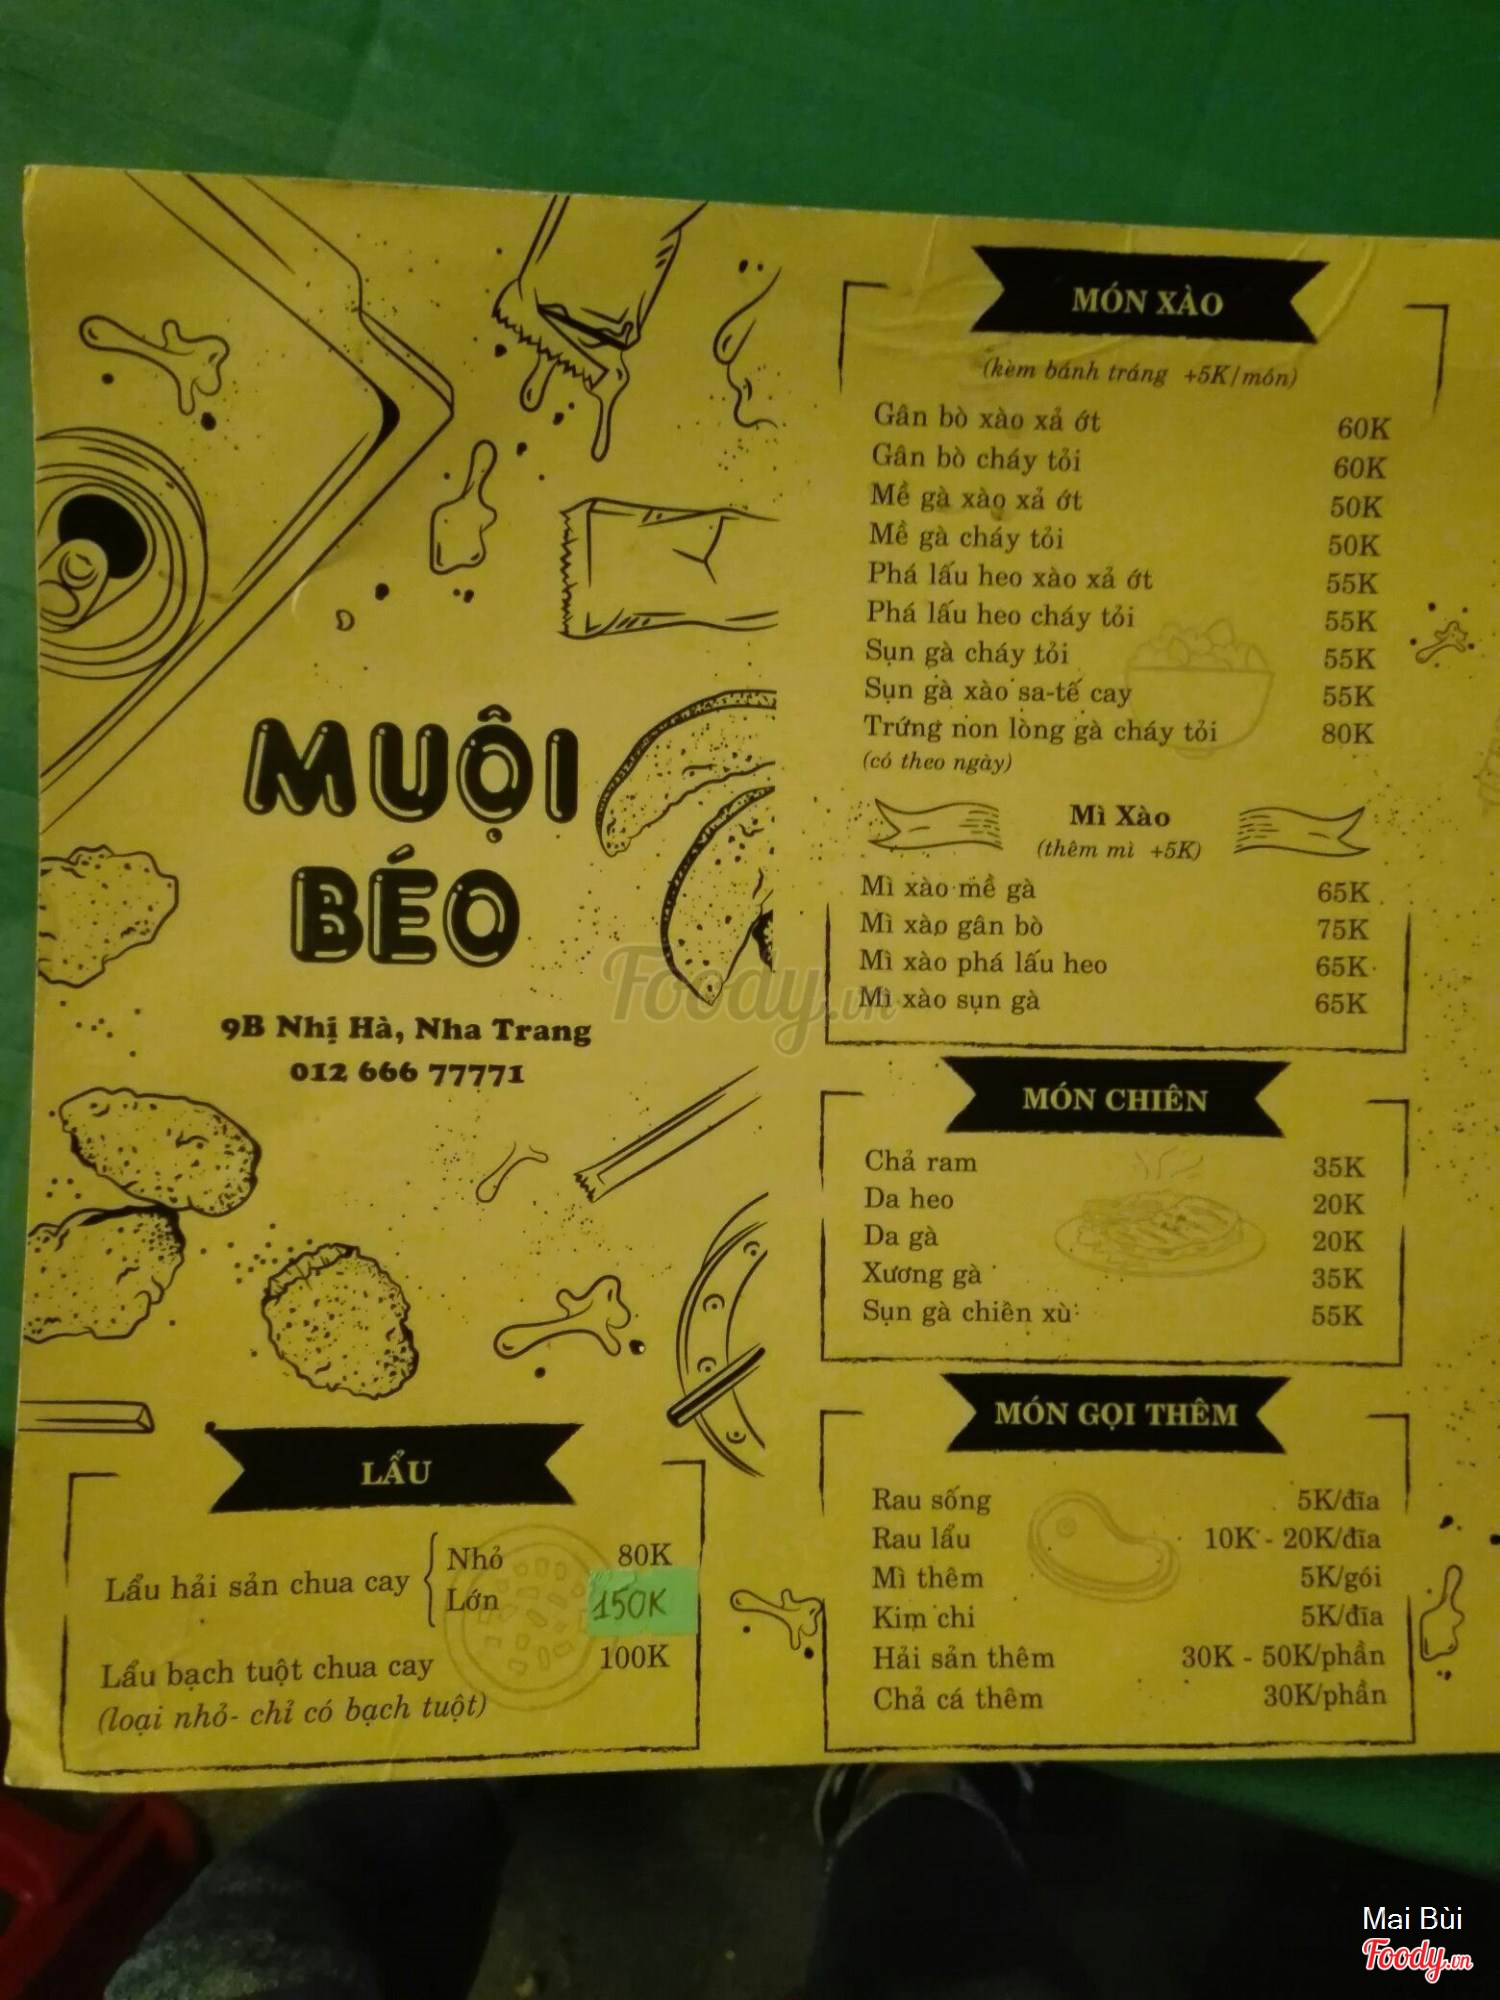 MUỘI
BÉO
9B Nhị Hà, Nha Trang
012 666 77771
LẨU
Lẩu hải sản chua cay
Nhỏ 80K
Lớn 150K
Lẩu bạch tuột chua cay 100K
(loại nhỏ- chỉ có bạch tuột)
MÓN XÀO
(kèm bánh tráng +5K/món)
Gân bò xào xả ớt 60K
Gân bò cháy tỏi 60K
Mề gà xào xả ớt 50K
Mề gà cháy tỏi 50K
Phá lấu heo xào xả ớt 55K
Phá lấu heo cháy tỏi 55K
Sụn gà cháy tỏi 55K
Sụn gà xào sa-tế cay 55K
Trứng non lòng gà cháy tỏi 80K
(có theo ngày)
Mì Xào
(thêm mì +5K)
Mì xào mề gà 65K
Mì xào gân bò 75K
Mì xào phá lấu heo 65K
Mì xào sụn gà 65K
MÓN CHIÊN
Chả ram 35K
Da heo 20K
Da gà 20K
Xương gà 35K
Sụn gà chiên xù 55K
MÓN GỌI THÊM
Rau sống 5K/đĩa
Rau lẩu 10K - 20K/đĩa
Mì thêm 5K/gói
Kim chi 5K/đĩa
Hải sản thêm 30K - 50K/phần
Chả cá thêm 30K/phần
Foody.vn
Mai Bùi
Foody.vn